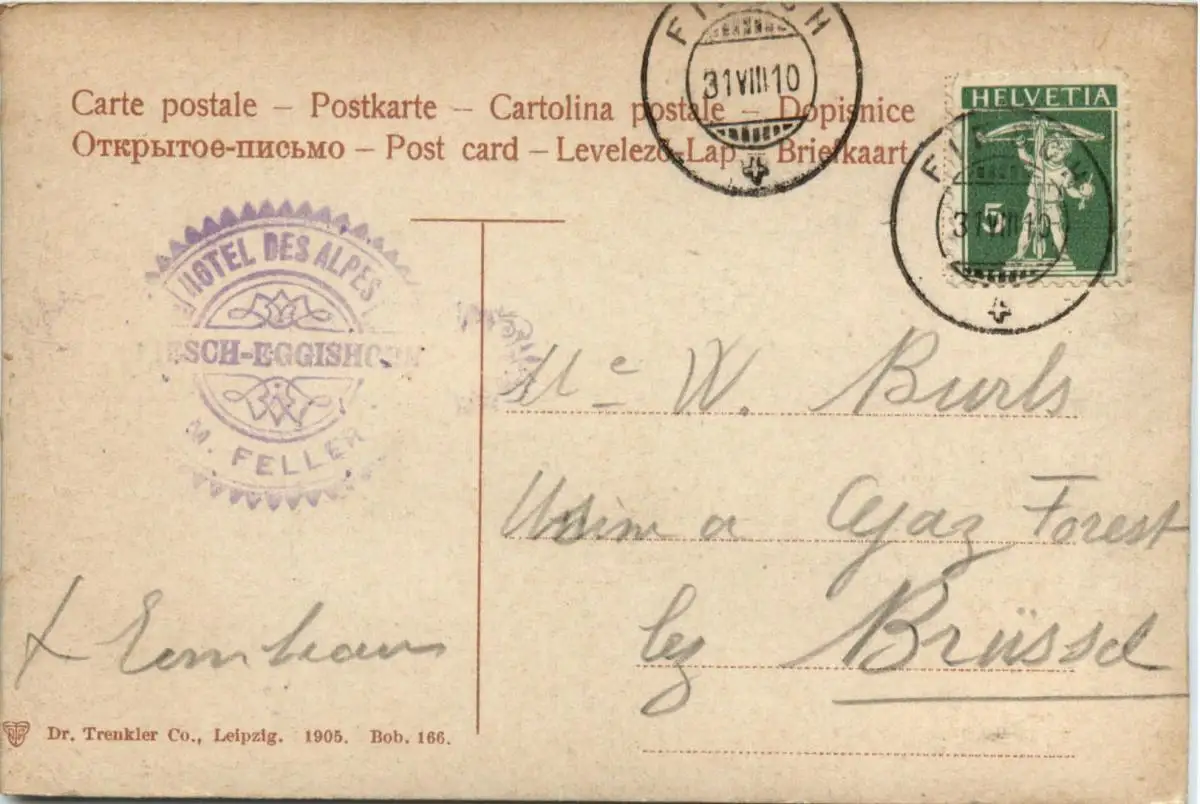 Carte postale – Postkarte – Cartolina postale – Dopisnice
Открытое-письмо – Post card – Levelező-Lap – Briefkaart
FIESCH
31 VIII 10
HELVETIA
5
FIESCH
31 VIII 10
HOTEL DES ALPES
FIESCH-EGGISHORN
M. FELLER
W. Burls
a Gaz Forest
lez Brüssel
Dr. Trenkler Co., Leipzig. 1905. Bob. 166.